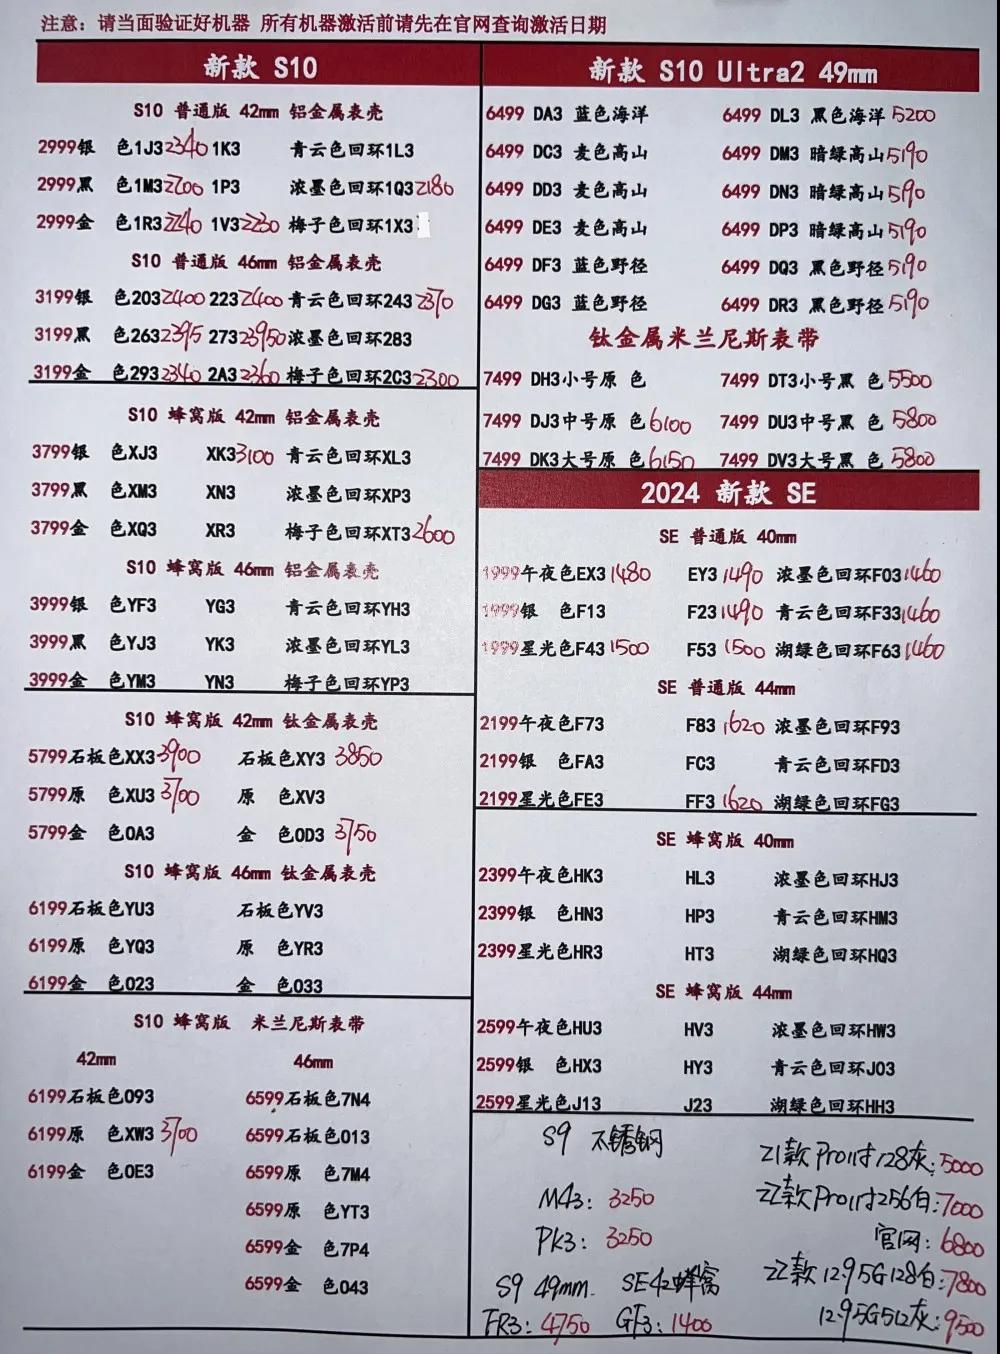 注意：请当面验证好机器 所有机器激活前请先在官网查询激活日期
新款 S10
S10 普通版 42mm 铝金属表壳
2999银 色1J3 2340 1K3 青云色回环1L3
2999黑 色1M3 2200 1P3 浓墨色回环1Q3 2180
2999金 色1R3 2240 1V3 2230 梅子色回环1X3
S10 普通版 46mm 铝金属表壳
3199银 色203 2400 223 2400 青云色回环243 2370
3199黑 色263 2395 273 23950 浓墨色回环283
3199金 色293 2340 2A3 2360 梅子色回环2C3 2300
S10 蜂窝版 42mm 铝金属表壳
3799银 色XJ3 XK3 3100 青云色回环XL3
3799黑 色XM3 XN3 浓墨色回环XP3
3799金 色XQ3 XR3 梅子色回环XT3 2600
S10 蜂窝版 46mm 铝金属表壳
3999银 色YF3 YG3 青云色回环YH3
3999黑 色YJ3 YK3 浓墨色回环YL3
3999金 色YM3 YN3 梅子色回环YP3
S10 蜂窝版 42mm 钛金属表壳
5799石板色XX3 3900 石板色XY3 3850
5799原 色XU3 3700 原 色XV3
5799金 色0A3 金 色0D3 3750
S10 蜂窝版 46mm 钛金属表壳
6199石板色YU3 石板色YV3
6199原 色YQ3 原 色YR3
6199金 色023 金 色033
S10 蜂窝版 米兰尼斯表带
42mm 46mm
6199石板色093 6599石板色7N4
6199原 色XW3 3700 6599石板色013
6199金 色0E3 6599原 色7M4
6599原 色YT3
6599金 色7P4
6599金 色043
新款 S10 Ultra2 49mm
6499 DA3 蓝色海洋 6499 DL3 黑色海洋 5200
6499 DC3 麦色高山 6499 DM3 暗绿高山 5190
6499 DD3 麦色高山 6499 DN3 暗绿高山 5190
6499 DE3 麦色高山 6499 DP3 暗绿高山 5190
6499 DF3 蓝色野径 6499 DQ3 黑色野径 5190
6499 DG3 蓝色野径 6499 DR3 黑色野径 5190
钛金属米兰尼斯表带
7499 DH3小号原 色 7499 DT3小号黑 色 5500
7499 DJ3中号原 色 6100 7499 DU3中号黑 色 5800
7499 DK3大号原 色 6150 7499 DV3大号黑 色 5800
2024 新款 SE
SE 普通版 40mm
1999午夜色EX3 1480 EY3 1490 浓墨色回环F03 1460
1999银 色F13 F23 1490 青云色回环F33 1460
1999星光色F43 1500 F53 1500 湖绿色回环F63 1460
SE 普通版 44mm
2199午夜色F73 F83 1620 浓墨色回环F93
2199银 色FA3 FC3 青云色回环FD3
2199星光色FE3 FF3 1620 湖绿色回环FG3
SE 蜂窝版 40mm
2399午夜色HK3 HL3 浓墨色回环HJ3
2399银 色HN3 HP3 青云色回环HM3
2399星光色HR3 HT3 湖绿色回环HQ3
SE 蜂窝版 44mm
2599午夜色HU3 HV3 浓墨色回环HW3
2599银 色HX3 HY3 青云色回环J03
2599星光色J13 J23 湖绿色回环HH3
S9 不锈钢
M43：3250
PK3：3250
S9 49mm SE42蜂窝
FR3：4750 GF3：1400
21款Pro11寸128灰：5000
22款Pro11寸256白：7000
官网：6800
22款12.9 5G128白：7800
12.9 5G512灰：9500